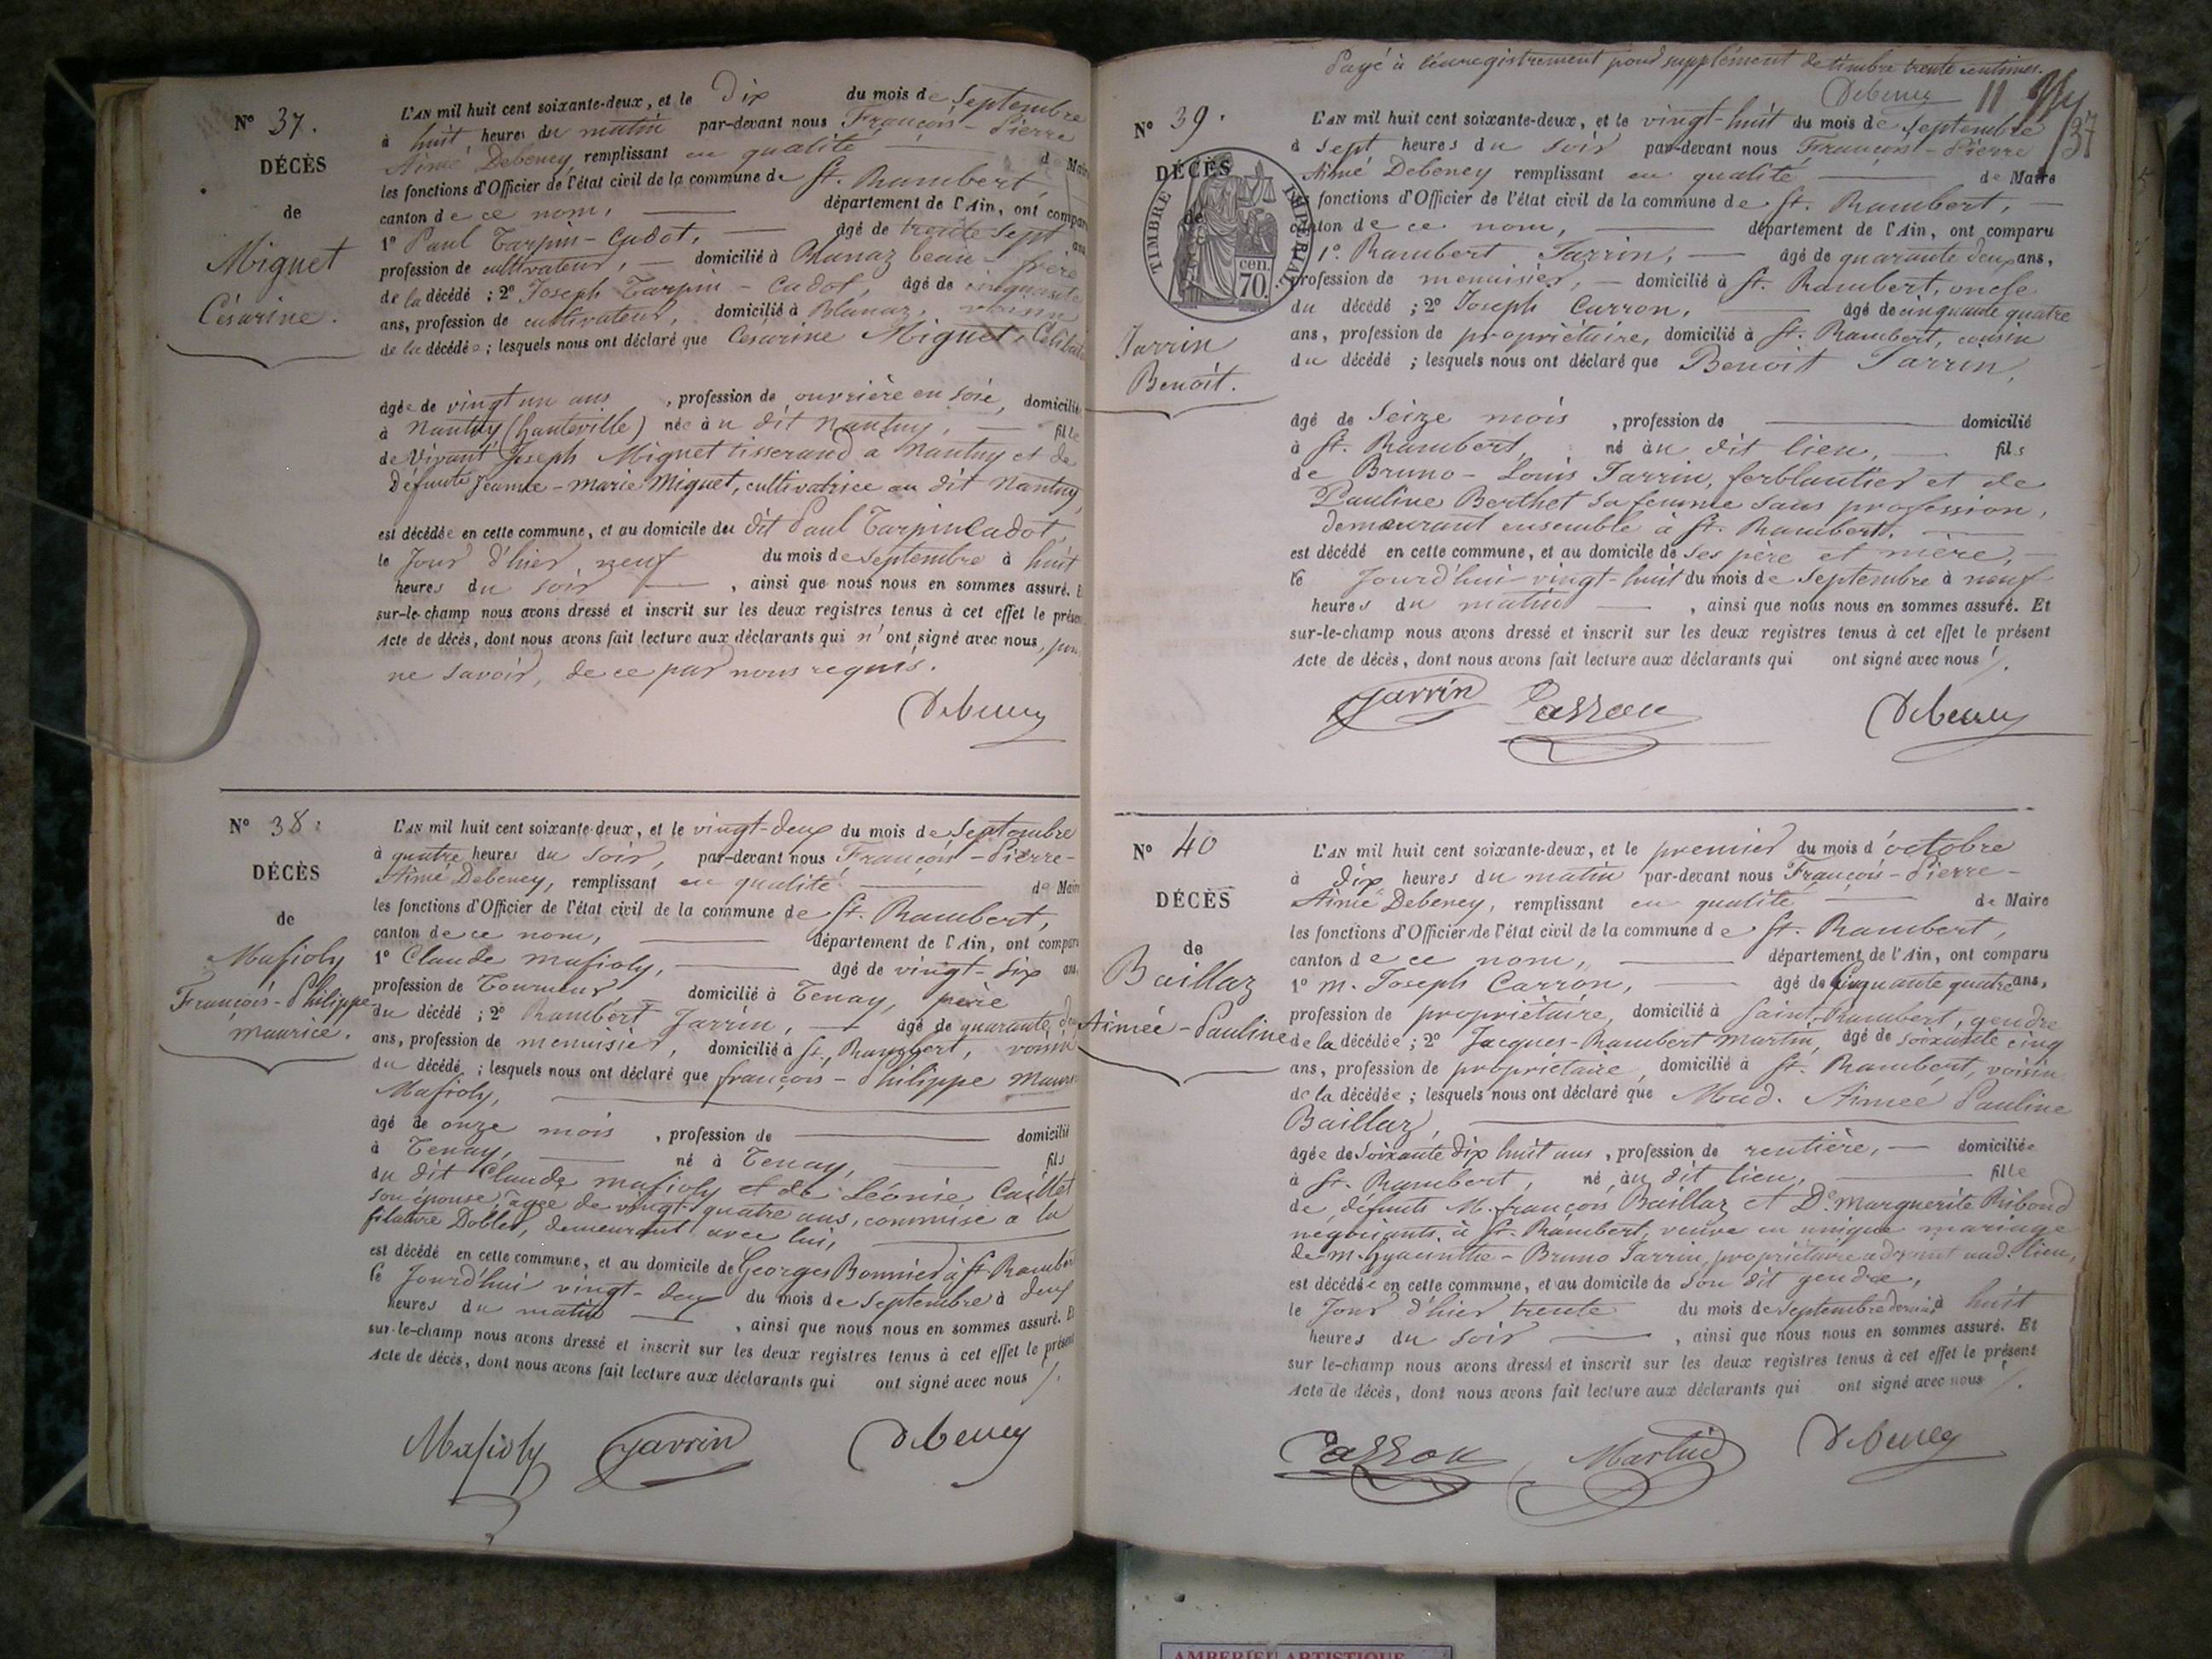 N° 37.
DÉCÈS
de
Miguet
Césarine.
L'AN mil huit cent soixante-deux, et le Dix du mois de Septembre
à huit heures du matin par-devant nous François-Pierre
Aimé Debeney, remplissant en qualité de Maire
les fonctions d'Officier de l'état civil de la commune de St. Rambert,
canton de ce nom, département de l'Ain, ont comparu
1° Paul Tarpin-Cadot, âgé de trente sept ans
profession de cultivateur, domicilié à Blanaz beau-frère
de la décédé ; 2° Joseph Tarpin-Cadot, âgé de cinquante
ans, profession de cultivateur, domicilié à Blanaz, voisin
de la décédée ; lesquels nous ont déclaré que Césarine Miguet, Céliba
âgée de vingt un ans, profession de ouvrière en soie, domicilié
à Nantuy (hauteville) née à u dit Nantuy, fille
de Vivant Joseph Miguet tisserand à Nantuy et de
Défunte Jeanne-Marie Miguet, cultivatrice au dit Nantuy
est décédée en cette commune, et au domicile du dit Paul Tarpin Cadot
le Jour d'hier neuf du mois de Septembre à huit
heures du soir, ainsi que nous nous en sommes assuré. E
sur-le-champ nous avons dressé et inscrit sur les deux registres tenus à cet effet le présen
Acte de décès, dont nous avons fait lecture aux déclarants qui n'ont signé avec nous, pour
ne savoir, de ce par nous requis.
Debeney
N° 38.
DÉCÈS
de
Masioly
François-Philippe
Maurice.
L'AN mil huit cent soixante-deux, et le vingt-deux du mois de Septembre
à quatre heures du soir, par-devant nous François-Pierre-
Aimé Debeney, remplissant en qualité de Maire
les fonctions d'Officier de l'état civil de la commune de St. Rambert,
canton de ce nom, département de l'Ain, ont comparu
1° Claude Masioly, âgé de vingt-six ans,
profession de Tourneur, domicilié à Tenay, père
du décédé ; 2° Rambert Jarrin, âgé de quarante deux
ans, profession de menuisier, domicilié à St. Rambert, voisin
du décédé ; lesquels nous ont déclaré que françois-Philippe Maurice
Masioly,
âgé de onze mois, profession de domicilié
à Tenay, né à Tenay, fils
du dit Claude Masioly et de Léonie Caillet
son épouse, âgée de vingt-quatre ans, commise à la
filature Dobler, demeurant avec lui,
est décédé en cette commune, et au domicile de Georges Bonnier à St. Rambert
le Jourd'hui vingt-deux du mois de Septembre à deux
heures du matin, ainsi que nous nous en sommes assuré. Et
sur-le-champ nous avons dressé et inscrit sur les deux registres tenus à cet effet le présent
Acte de décès, dont nous avons fait lecture aux déclarants qui ont signé avec nous /.
Masioly Jarrin Debeney
Payé à l'enregistrement pour supplément de timbre trente centimes.
Debeney 11
37
N° 39.
DÉCÈS
de
TIMBRE IMPÉRIAL
70 cen.
Jarrin
Benoît.
L'AN mil huit cent soixante-deux, et le vingt-huit du mois de Septembre
à sept heures du soir par-devant nous François-Pierre
Aimé Debeney remplissant en qualité de Maire
fonctions d'Officier de l'état civil de la commune de St. Rambert,
canton de ce nom, département de l'Ain, ont comparu
1° Rambert Jarrin, âgé de quarante deux ans,
profession de menuisier, domicilié à St. Rambert, oncle
du décédé ; 2° Joseph Carron, âgé de cinquante quatre
ans, profession de propriétaire, domicilié à St. Rambert, cousin
du décédé ; lesquels nous ont déclaré que Benoit Jarrin,
âgé de Seize mois, profession de domicilié
à St. Rambert, né à u dit lieu, fils
de Bruno-Louis Jarrin, ferblantier et de
Pauline Berthet sa femme sans profession,
demeurant ensemble à St. Rambert,
est décédé en cette commune, et au domicile de ses père et mère,
le Jourd'hui vingt-huit du mois de Septembre à neuf
heures du matin, ainsi que nous nous en sommes assuré. Et
sur-le-champ nous avons dressé et inscrit sur les deux registres tenus à cet effet le présent
Acte de décès, dont nous avons fait lecture aux déclarants qui ont signé avec nous /.
Jarrin Carron Debeney
N° 40
DÉCÈS
de
Baillaz
Aimée-Pauline
L'AN mil huit cent soixante-deux, et le premier du mois d'octobre
à dix heures du matin par-devant nous François-Pierre-
Aimé Debeney, remplissant en qualité de Maire
les fonctions d'Officier de l'état civil de la commune de St. Rambert,
canton de ce nom, département de l'Ain, ont comparu
1° M. Joseph Carron, âgé de Cinquante quatre ans,
profession de propriétaire, domicilié à Saint-Rambert, gendre
de la décédée ; 2° Jacques-Rambert Martin, âgé de soixante cinq
ans, profession de propriétaire, domicilié à St. Rambert, voisin
de la décédée ; lesquels nous ont déclaré que Mad. Aimée Pauline
Baillaz,
âgée de Soixante dix huit ans, profession de rentière, domiciliée
à St. Rambert, né à u dit lieu, fille
de défunts M. françois Baillaz et De. Marguerite Riboud
négociants, à St. Rambert, veuve en unique mariage
de M. Hyacinthe-Bruno Jarrin, propriétaire aud. lieu,
est décédée en cette commune, et au domicile de son dit gendre,
le Jour d'hier trente du mois de Septembre dernier à huit
heures du soir, ainsi que nous nous en sommes assuré. Et
sur le-champ nous avons dressé et inscrit sur les deux registres tenus à cet effet le présent
Acte de décès, dont nous avons fait lecture aux déclarants qui ont signé avec nous /.
Carron Martin Debeney
AMBERIEU ARTISTIQUE